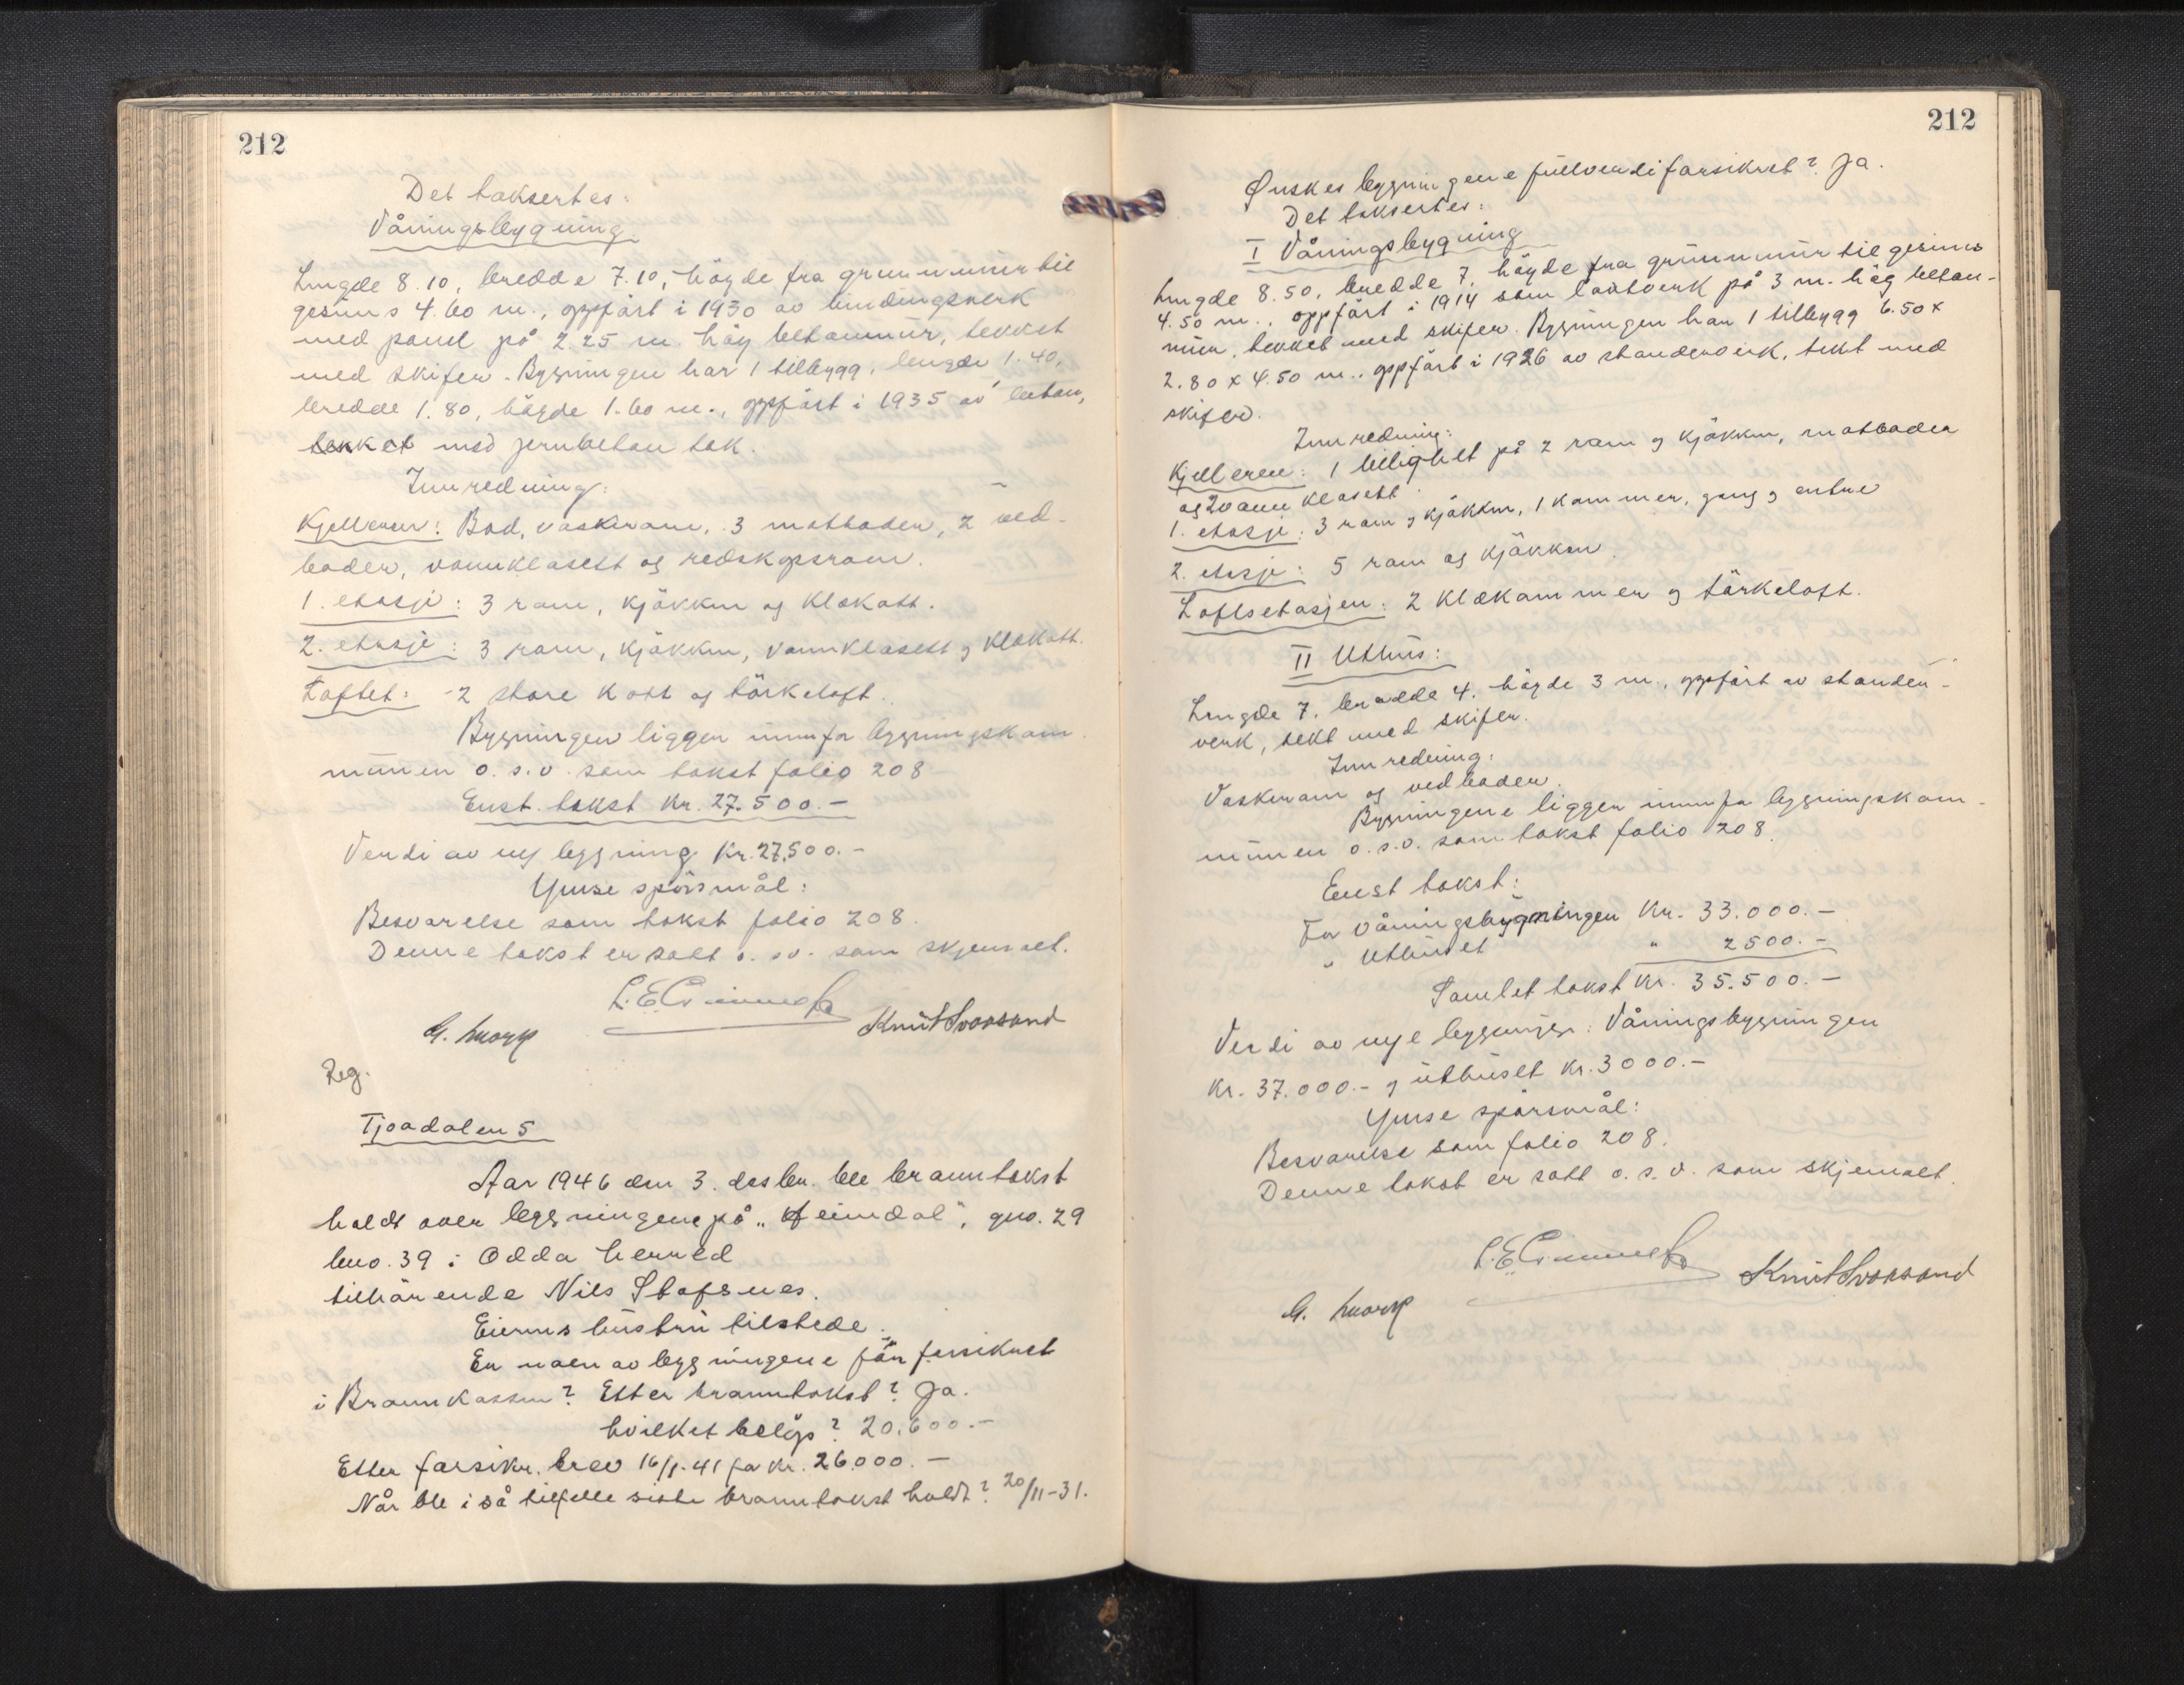 212
Det taksertes:
Våningsbygning.
Lengde 8.10, bredde 7.10, høyde fra grunnmur til
gesims 4.60 m., oppført i 1930 av bindingsverk
med panel på 2.25 m. høy betonmur, tekket
med skifer. Bygningen har 1 tilbygg, lengde 1.40,
bredde 1.80, høyde 1.60 m., oppført i 1935 av beton,
tekket med jernbeton tak.
Innredning:
Kjelleren: Bad, vaskerom, 3 matboder, 2 ved-
boder, vannklosett og redskapsrom.
1. etasje: 3 rom, kjøkken og klekott.
2. etasje: 3 rom, kjøkken, vannklosett og klekott.
Loftet: 2 store kott og tørkeloft.
Bygningen ligger innenfor bygningskom-
munen o.s.v. som takst folio 208
Enst. takst Kr. 27.500.-
Verdi av ny bygning Kr. 27.500.-
Ymse spørsmål:
Besvarelse som takst folio 208.
Denne takst er satt o.s.v. som skjemaet.
Knut Svaasand
Reg.
Tjoadalen 5
Aar 1946 den 3. desbr. ble branntakst
holdt over bygningene på "Heimdal", gno. 29
bno. 39 i Odda herred
tilhørende Nils Stafsnes.
Eierens hustru tilstede.
Er noen av bygningene før forsikret
i Brannkassen? Etter branntakst? Ja.
hvilket beløp? 20.600.-
Etter forsikr. brev 16/1-41 for kr. 26.000.-
Når ble i så tilfelle siste branntakst holdt? 20/11-31.
212
Ønskes bygningene fullverdiforsikret? Ja.
Det taksertes:
I Våningsbygning
Lengde 8.50, bredde 7, høyde fra grunnmur til gesims
4.50 m., oppført i 1914 som laftverk på 3 m. høg beton-
mur, tekket med skifer. Bygningen har 1 tilbygg 6.50 x
2.80 x 4.50 m., oppført i 1926 av standerverk, tekt med
skifer.
Innredning:
Kjelleren: 1 leilighet på 2 rom og kjøkken, matboder
og vannklosett
1. etasje: 3 rom og kjøkken, 1 kammer, gang og entre
2. etasje: 5 rom og kjøkken.
Loftsetasjen: 2 klekammer og tørkeloft.
II Uthus:
Lengde 7, bredde 4, høgde 3 m., oppført av stander-
verk, tekt med skifer.
Innredning:
Vaskerom og vedboder.
Bygningene ligger innenfor bygningskom-
munen o.s.v. som takst folio 208.
Enst takst:
For våningsbygningen Kr. 33.000.-
" Uthuset " 2500.-
Samlet takst Kr. 35.500.-
Verdi av nye bygninger: Våningsbygningen
Kr. 37.000.- og uthuset Kr. 3000.-
Ymse spørsmål:
Besvarelse som folio 208.
Denne takst er satt o.s.v. som skjemaet.
Knut Svaasand